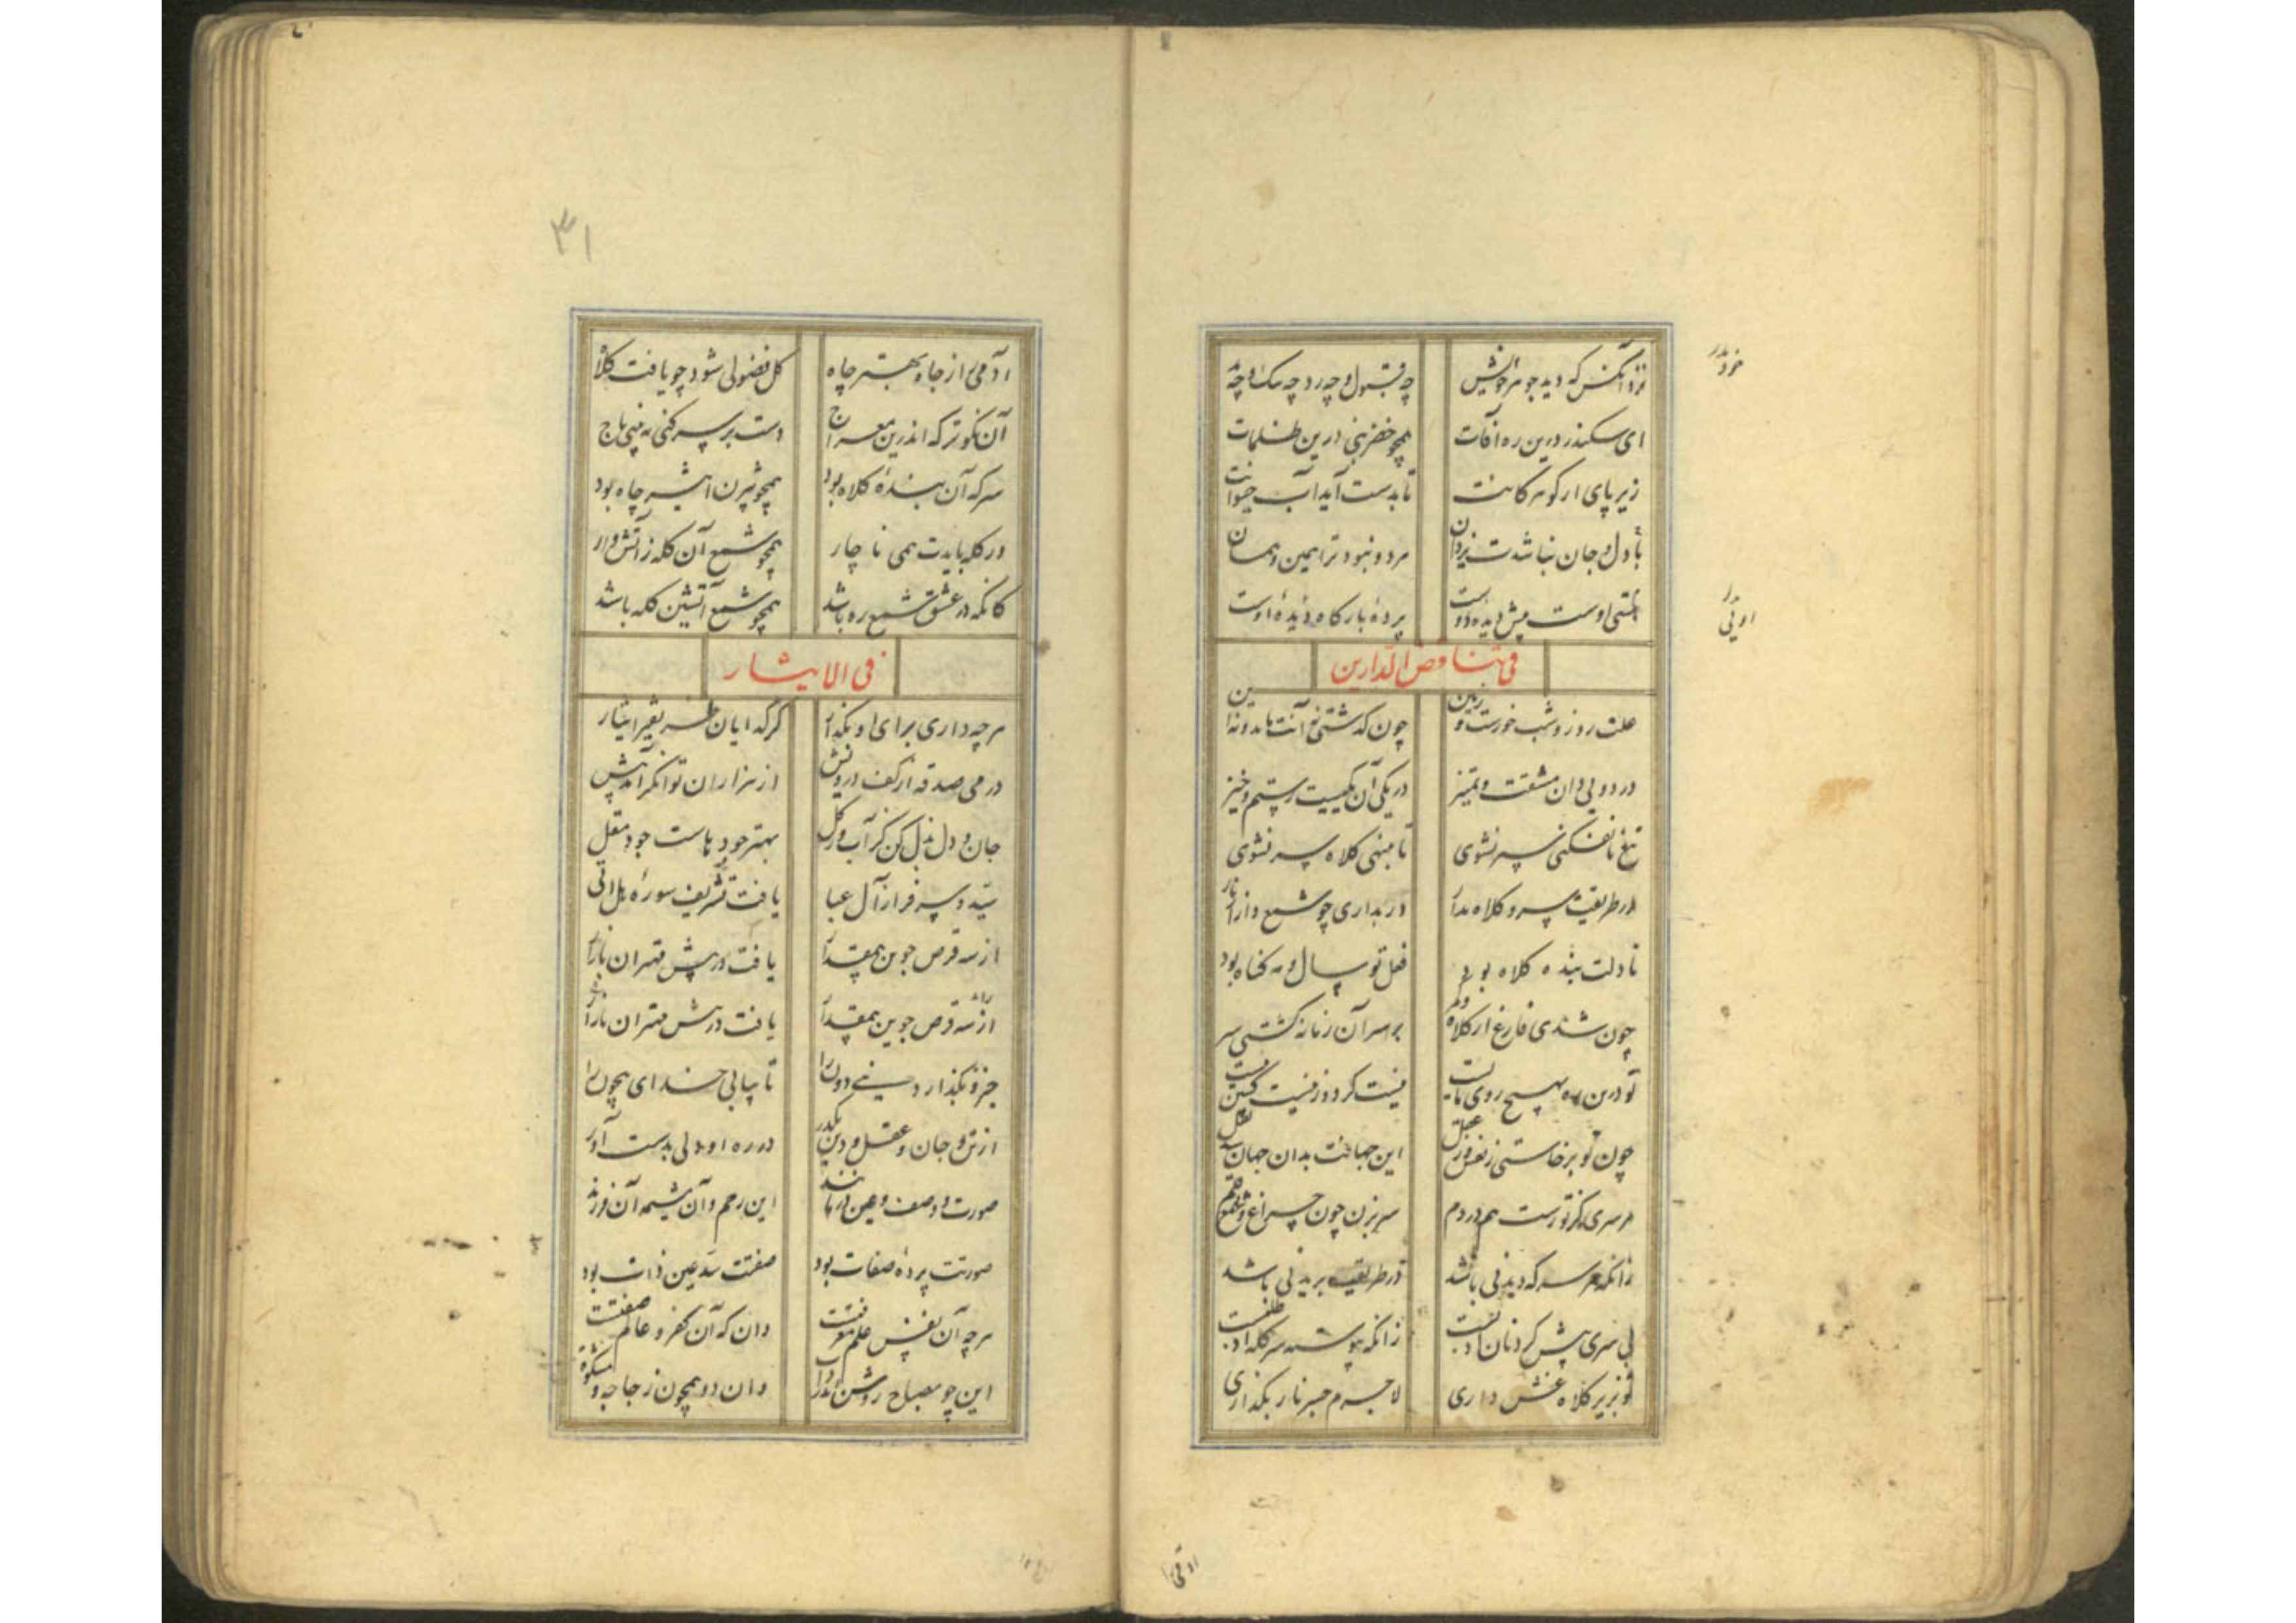 نزد آنکس که دید جوهر خویش چه قبول و چه رد چه نیک و چه
خرد
ای سکندر درین ره آفات همچو خضر نبی درین ظلمات
زیر پای ار گوهر کانت تا بدست آید آب حیوانت
با دل و جان نباشدت یزدان هر دو نبود ترا همین و همان
هستی اوست پیش دیده دوست پرده بارگاه دیده اوست
فی تناقض الدارین
علت روز و شب خورست و زمین چون گذشتی نه آنت ماند و نه این
در دویی دان مشقت و تمیز در یکی آن یکیست رستم و حیز
تیغ تا نفکنی سپر نشوی تا بننهی کلاه سر نشوی
در طریقت سر و کلاه مدار ور بداری چو شمع دار از نار
تا دلت بنده کلاه بود فعل تو سال و مه گناه بود
چون شدی فارغ از کلاه و کمر بر سر آن زمانه گشتی سر
تو درین ره بهیچ روی مایست نیست گرد و ز نیست گشتن
چون تو برخاستی ز نفس و ز عقل این جهانت بدان جهان نقل
هر سری کز تو رست هم در دم سر بزن چون چراغ و شمع و قلم
زانکه هر سر که دیدنی باشد در طریقت بریدنی باشد
بی سری پیش گردنان ادبست زانکه پیوسته سر کله طلبست
تو بزیر کلاه غش داری لاجرم جبر نار بگذاری
۳۱
آدمی از جاه بهتر چاه کل فضولی شود چو یافت کلاه
آن نکوتر که اندرین معراج دست بر سر کنی نه بینی تاج
سر که آن بنده کلاه بود همچو بیژن اسیر چاه بود
ور کله بایدت همی ناچار همچو شمع آن کله ز آتش دار
کانکه در عشق شمع ره باشد همچو شمع آتشین کله باشد
فی الایثار
هر چه داری برای او بگذار کز گدایان ظریفتر ایثار
درمی صدقه از کف درویش از هزاران توانگر آمد پیش
جان و دل بذل کن کز آب و ز گل بهتر جودهاست جود مقل
سید و سرفراز آل عبا یافت تشریف سوره هل اتی
از سه قرص جوین بی‌مقدار یافت در پیش مهتران بازار
زان سه قرص جوین بی‌مقدار یافت در پیش مهتران بازار
خیز و بگذار دنیی دون را تا بیابی خدای بیچون را
از تن و جان و عقل و دین بگذر در ره او دلی بدست آور
صورت و وصف و عین در مانند این رحم و آن مشیمه آن فرزند
صورتت پرده صفات بود صفتت سد عین ذات بود
هر چه آن نقش علم و معرفتست دان که آن کفر و عالم صفتست
این چو مصباح روشن اندر ذات وان دو همچون زجاجه و مشکوة